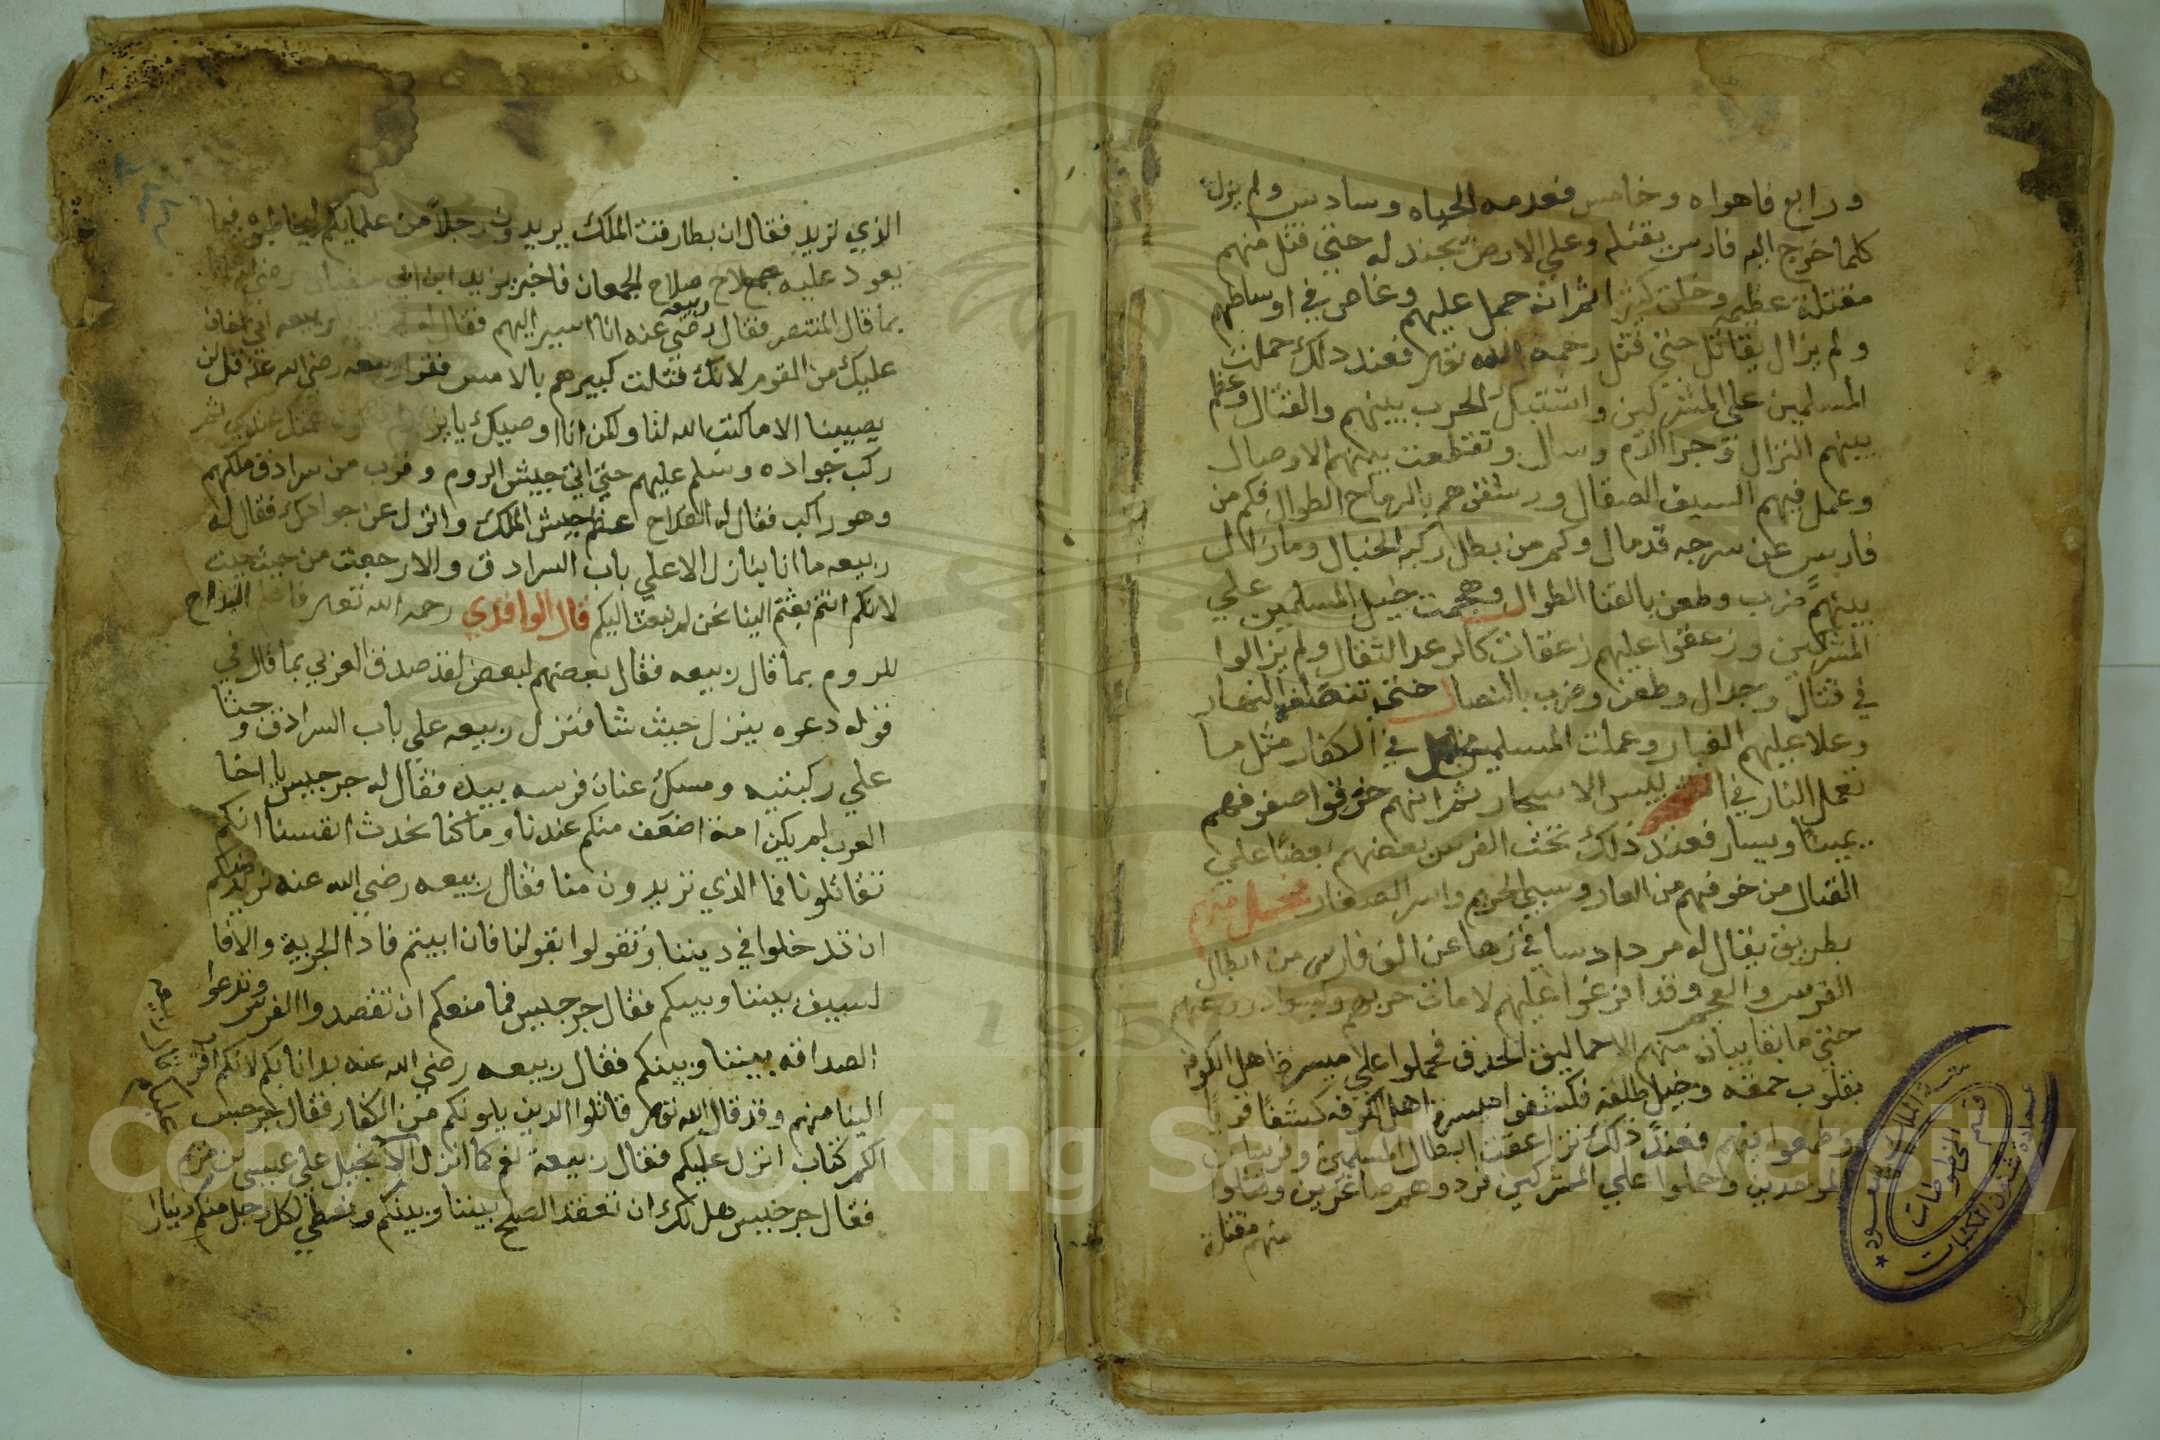 ورابع فاهواه وخامس فعدمه الحياه وسادس ولم يزل
كلما خرج اليه فارس يقتله وعلي الارض يجندله حتي قتل منهم
مقتلة عظيمه وخلق كثير ثم انه حمل عليهم وغاص في اوساطهم
ولم يزال يقاتل حتي قتل رحمه الله تعالى فعند ذلك حملت
المسلمين علي المشركين واشتبك الحرب بينهم والقتال وعظم
بينهم النزال وجرا الدم وسال وتقطعت بينهم الاوصال
وعمل فيهم السيف الصقال ورشقوهم بالرماح الطوال فكم من
فارس عن سرجه قد مال وكم من بطل ركبه الخبال وما زال
بينهم ضرب وطعن بالقنا الطوال وهجمت خيل المسلمين علي
المشركين وزعقوا عليهم زعقات كالرعد الثقال ولم يزالوا
في قتال وجدال وطعن وضرب بالنصال حتي تنصف النهار
وعلا عليهم الغبار وعملت المسلمين في الكفار مثل ما
تعمل النار في يبس الاسجار ثم انهم خرقوا صفوفهم
يمينا ويسار فعند ذلك نخت الفرس بعضهم بعضا علي
القتال من خوفهم من العار وسبي الحريم واسر الصغار فحمل منهم
بطريق يقال له في زها عن الف فارس من ابطال
الفرس والعجم وقد افرغوا عليهم لامات حربهم
حتي ما بقا يبان منهم الا حماليق الحدق فحملوا علي ميسرة اهل الكوفه
بقلوب حمقه وخيل طلقه فكشفوا ميسرة اهل الكوفه كشفا قويا
وطمعوا فيهم فعند ذلك تزاعقت ابطال المسلمين وفرسان
الموحدين وحملوا علي المشركين فردوهم صاغرين وقتلوا
منهم مقتلة
الذي تريد فقال ان بطارقت الملك يريدون رجلا من علمايكم ليخاطبوه فيما
يعود عليه صلاح الجمعان فاخبر يزيد ابن ابي سفيان رضي الله
بما قال المنتصر فقال ربيعه رضي عنه انا اسير اليهم فقال ربيعه اني اخاف
عليك من القوم لانك قتلت كبيرهم بالامس فقرا ربيعه رضي الله عنه قل لن
يصيبنا الا ما كتب الله لنا ولكن انا اوصيك يا يزيد
ركب جواده وسلم عليهم حتي اتي جيش الروم وقرب من سرادق ملكهم
وهو راكب فقال له القداح عظم جيش الملك وانزل عن جوادك فقال له
ربيعه ما انا بنازل الا علي باب السرادق والا رجعت من حيث جيت
لانكم انتم بعثتم الينا نحن لم نبعث اليكم قال الواقدي رحمه الله تعالى فاعلم القداح
للروم بما قال ربيعه فقال بعضهم لبعض لقد صدق العربي بما قال في
قوله دعوه ينزل حيث شا فنزل ربيعه علي باب السرادق وجثا
علي ركبتيه ومسك عنان فرسه بيده فقال له جرجيس يا اخا
العرب لم يكن امة اضعف منكم عندنا وما كنا نحدث انفسنا انكم
تقاتلونا فما الذي تريدون منا فقال ربيعه رضي الله عنه نريد منكم
ان تدخلوا في ديننا وتقولوا بقولنا فان ابيتم فادا الجزية والا فا
لسيف بيننا وبينكم فقال جرجيس فما منعكم ان تقصدوا الفرس وتدعوا
الصداقه بيننا وبينكم فقال ربيعه رضي الله عنه بدانا بكم لانكم اقرب
الينا منهم وقد قال الله تعالى قاتلوا الذين يلونكم من الكفار فقال جرجيس
الكم كتاب انزل عليكم فقال ربيعة نعم كما انزل الانجيل علي عيسي بن مريم
فقال جرجيس هل لك ان تعقد الصلح بيننا وبينكم ونعطي لكل رجل منكم دينارا
عليه السلام
1957
Copyright © King Saud University
جامعة الملك سعود
قسم المخطوطات
عمادة شئون المكتبات